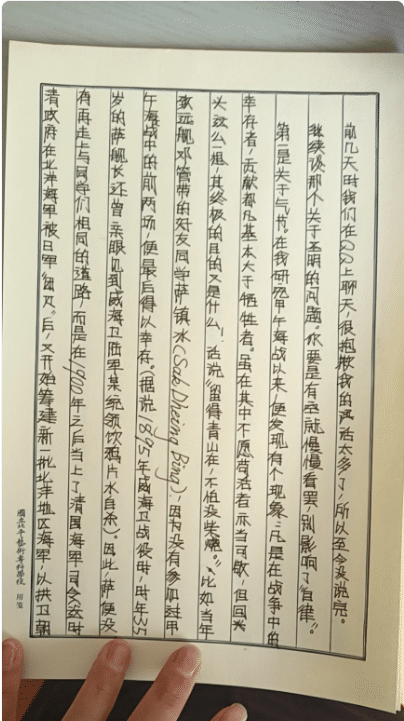 前几天时我们在QQ上聊天，很抱歉我的废话太多了，所以至今没说完。
继续谈那个关于圣明的问题。你要是有空就慢慢看罢，别影响了“自律”。
第一是关于气节。在我研究甲午海战以来，便发现有个现象：凡是在战争中的
幸存者，贡献都几基本大于牺牲者。虽在其中不愿苟活者亦当可敬，但回头
头这么一想，其终极的目的又是什么！话说“留得青山在，不怕没柴烧。”比如当年
致远舰邓管带的好友同学萨镇冰(Sak Dheing Bing)，因为没有参加过甲
午海战中的前两场，便最后得以幸存。(据说1895年威海卫战役时，时年35
岁的萨舰长还曾亲眼见到威海卫陆军某统领饮鸦片水自杀)。因此萨便没
有再走上与同学们相同的道路，而是在1900年之后当上了清国海军司令这时
清政府在北洋海军被日军“团灭”后，又开始筹建新一批北洋地区海军，以拱卫朝
國立北平藝術專科學校 用箋